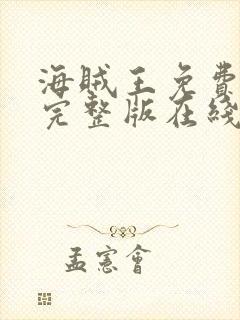 海賊王免費
完整版在綫
孟憲會